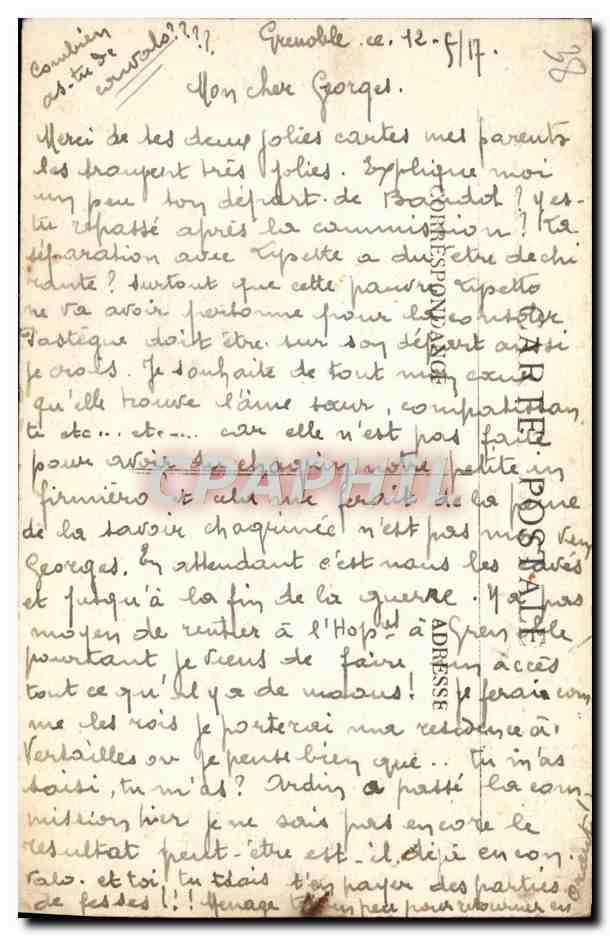 Combien
as-tu de
convalo????
Grenoble ce 12-5/17.
38
Mon cher Georges.
Merci de tes deux jolies cartes mes parents
les trouvent très jolies. Explique moi
un peu ton départ de Bandol? y es-
tu repassé après la commission? La
séparation avec Lysette a du être dechi
rante? surtout que cette pauvre Lysette
ne va avoir personne pour la consoler
Pastèque doit être sur son départ aussi
je crois. Je souhaite de tout mon cœur
qu'elle trouve l'âme sœur, compatissan
te etc... etc.... car elle n'est pas faite
pour avoir du chagrin notre petite in
firmièro et cela me ferait de la peine
de la savoir chagrinée n'est pas mon vieux
Georges. En attendant c'est nous les
et jusqu'à la fin de la guerre. Y a pas
moyen de rentrer à l'Hop.al à Grenoble
pourtant je viens de faire un accès
tout ce qu'il y a de maous! je ferai com
me les rois je porterai ma residence à
Versailles ou je pense bien que.. tu m'as
saisi, tu m'as? Ardin a passé la com
mission hier je ne sais pas encore le
resultat peut-être est-il déjà en con.
valo. et toi tu t'en payer des parties
de fesses!!! Menage toi un peu pour retourner en
Orient!
CORRESPONDANCE
CARTE POSTALE
ADRESSE
CPAPHIL